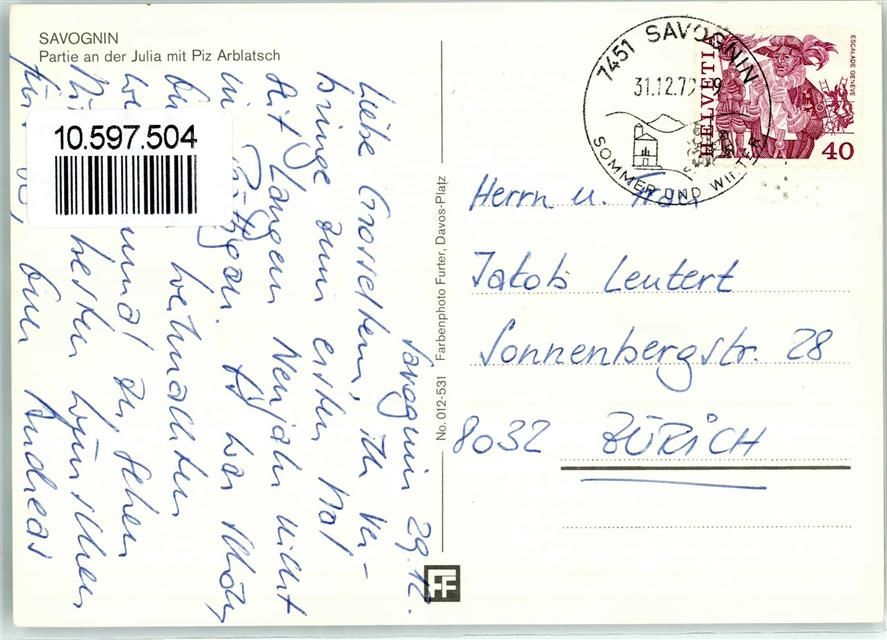 SAVOGNIN
Partie an der Julia mit Piz Arblatsch
10.597.504
Savognin 29.12.
Liebe Grosseltern, ich ver-
bringe zum ersten Mal
seit langem Neujahr nicht
in Rüttgau. Es war schön,
an Weihnachten
und zu sehen
besten Wünschen
für Euer Andreas
No. 012-531 Farbenphoto Furter, Davos-Platz
FF
7451 SAVOGNIN
31.12.79-9
SOMMER UND WINTER
HELVETIA
ESCALADE GENÈVE
40
Herrn u. Frau
Jakob Leutert
Sonnenbergstr. 28
8032 ZÜRICH